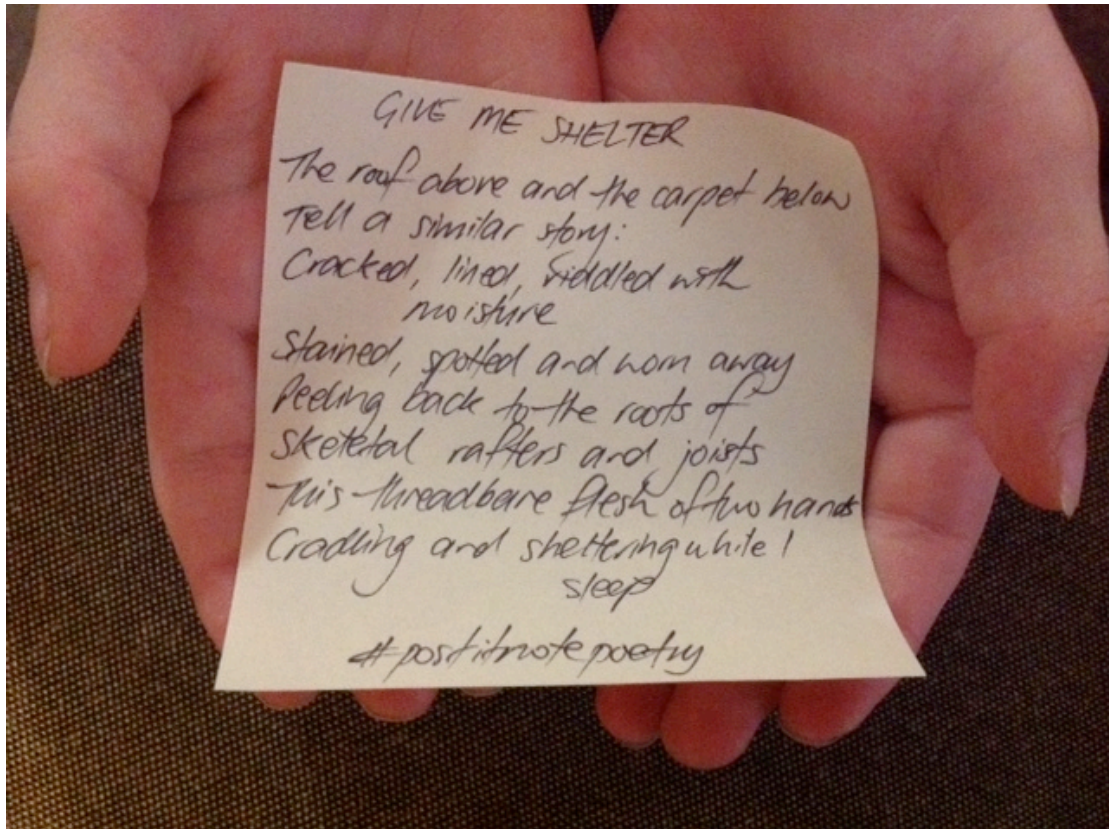 GIVE ME SHELTER
The roof above and the carpet below
Tell a similar story:
Cracked, lined, riddled with
moisture
Stained, spotted and worn away
Peeling back to the roots of
skeletal rafters and joists
This threadbare flesh of two hands
Cradling and sheltering while I
sleep
#postitnotepoetry